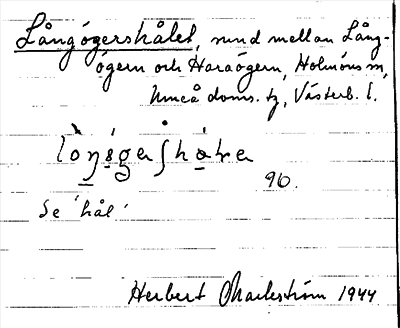 Långögershålet, sund mellan Lång-
ögern och Haraögern, Holmöns sn,
Umeå doms. tg, Västerb. l.
96.
Se 'hål'
Herbert Markström 1944